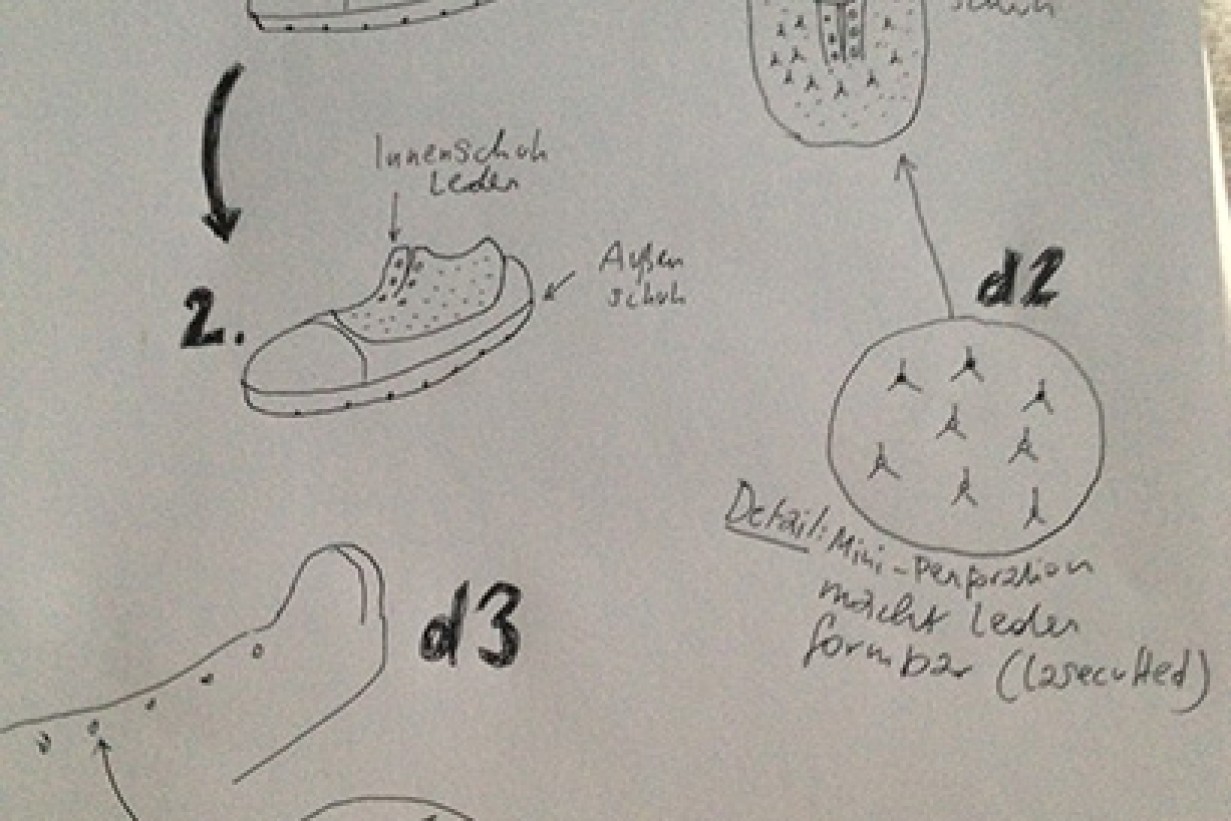 schuh
Innenschuh
Leder
Außen
schuh
2.
d2
Detail: Mini-Perforation
macht Leder
formbar (lasecutted)
d3